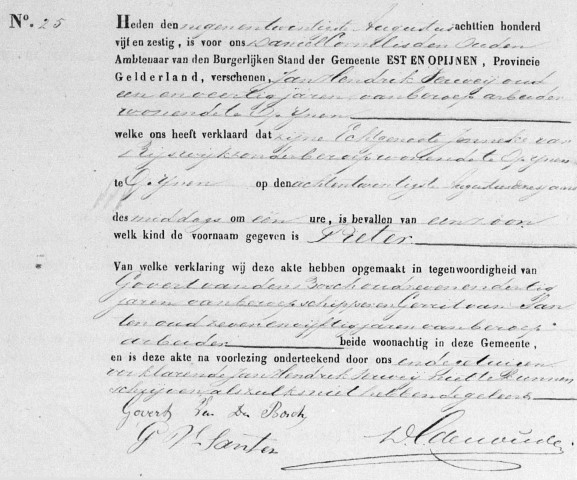 N.º 25
Heden den negenentwintigste Augustus achttien honderd
vijf en zestig, is voor ons Daniël Cornelis den Ouden
Ambtenaar van den Burgerlijken Stand der Gemeente EST EN OPIJNEN, Provincie
Gelderland, verschenen, Jan Hendrik oud
een en veertig jaren van beroep arbeider
wonende te Opijnen
welke ons heeft verklaard dat zijne Echtgenoote Janneke van
Rijswijk zonder beroep wonende te Opijnen
te Opijnen op den achtentwintigste Augustus dezes jaars
des middags om één ure, is bevallen van een zoon
welk kind de voornaam gegeven is Pieter
Van welke verklaring wij deze akte hebben opgemaakt in tegenwoordigheid van
Govert van den Bosch oud zevenendertig
jaren van beroep schipper en Gerrit van San
ten oud zeven en vijftig jaren van beroep
arbeider beide woonachtig in deze Gemeente,
en is deze akte na voorlezing onderteekend door ons en de getuigen
verklarende Jan Hendrik niet te kunnen
schrijven als zulks niet hebbende geleerd
Govert Van Den Bosch
G V Santen
DC den Ouden